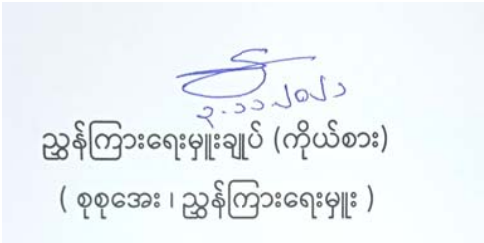 ၃.၁၁.၂၀၂၁
ညွှန်ကြားရေးမှူးချုပ် (ကိုယ်စား)
( စုစုအေး ၊ ညွှန်ကြားရေးမှူး )